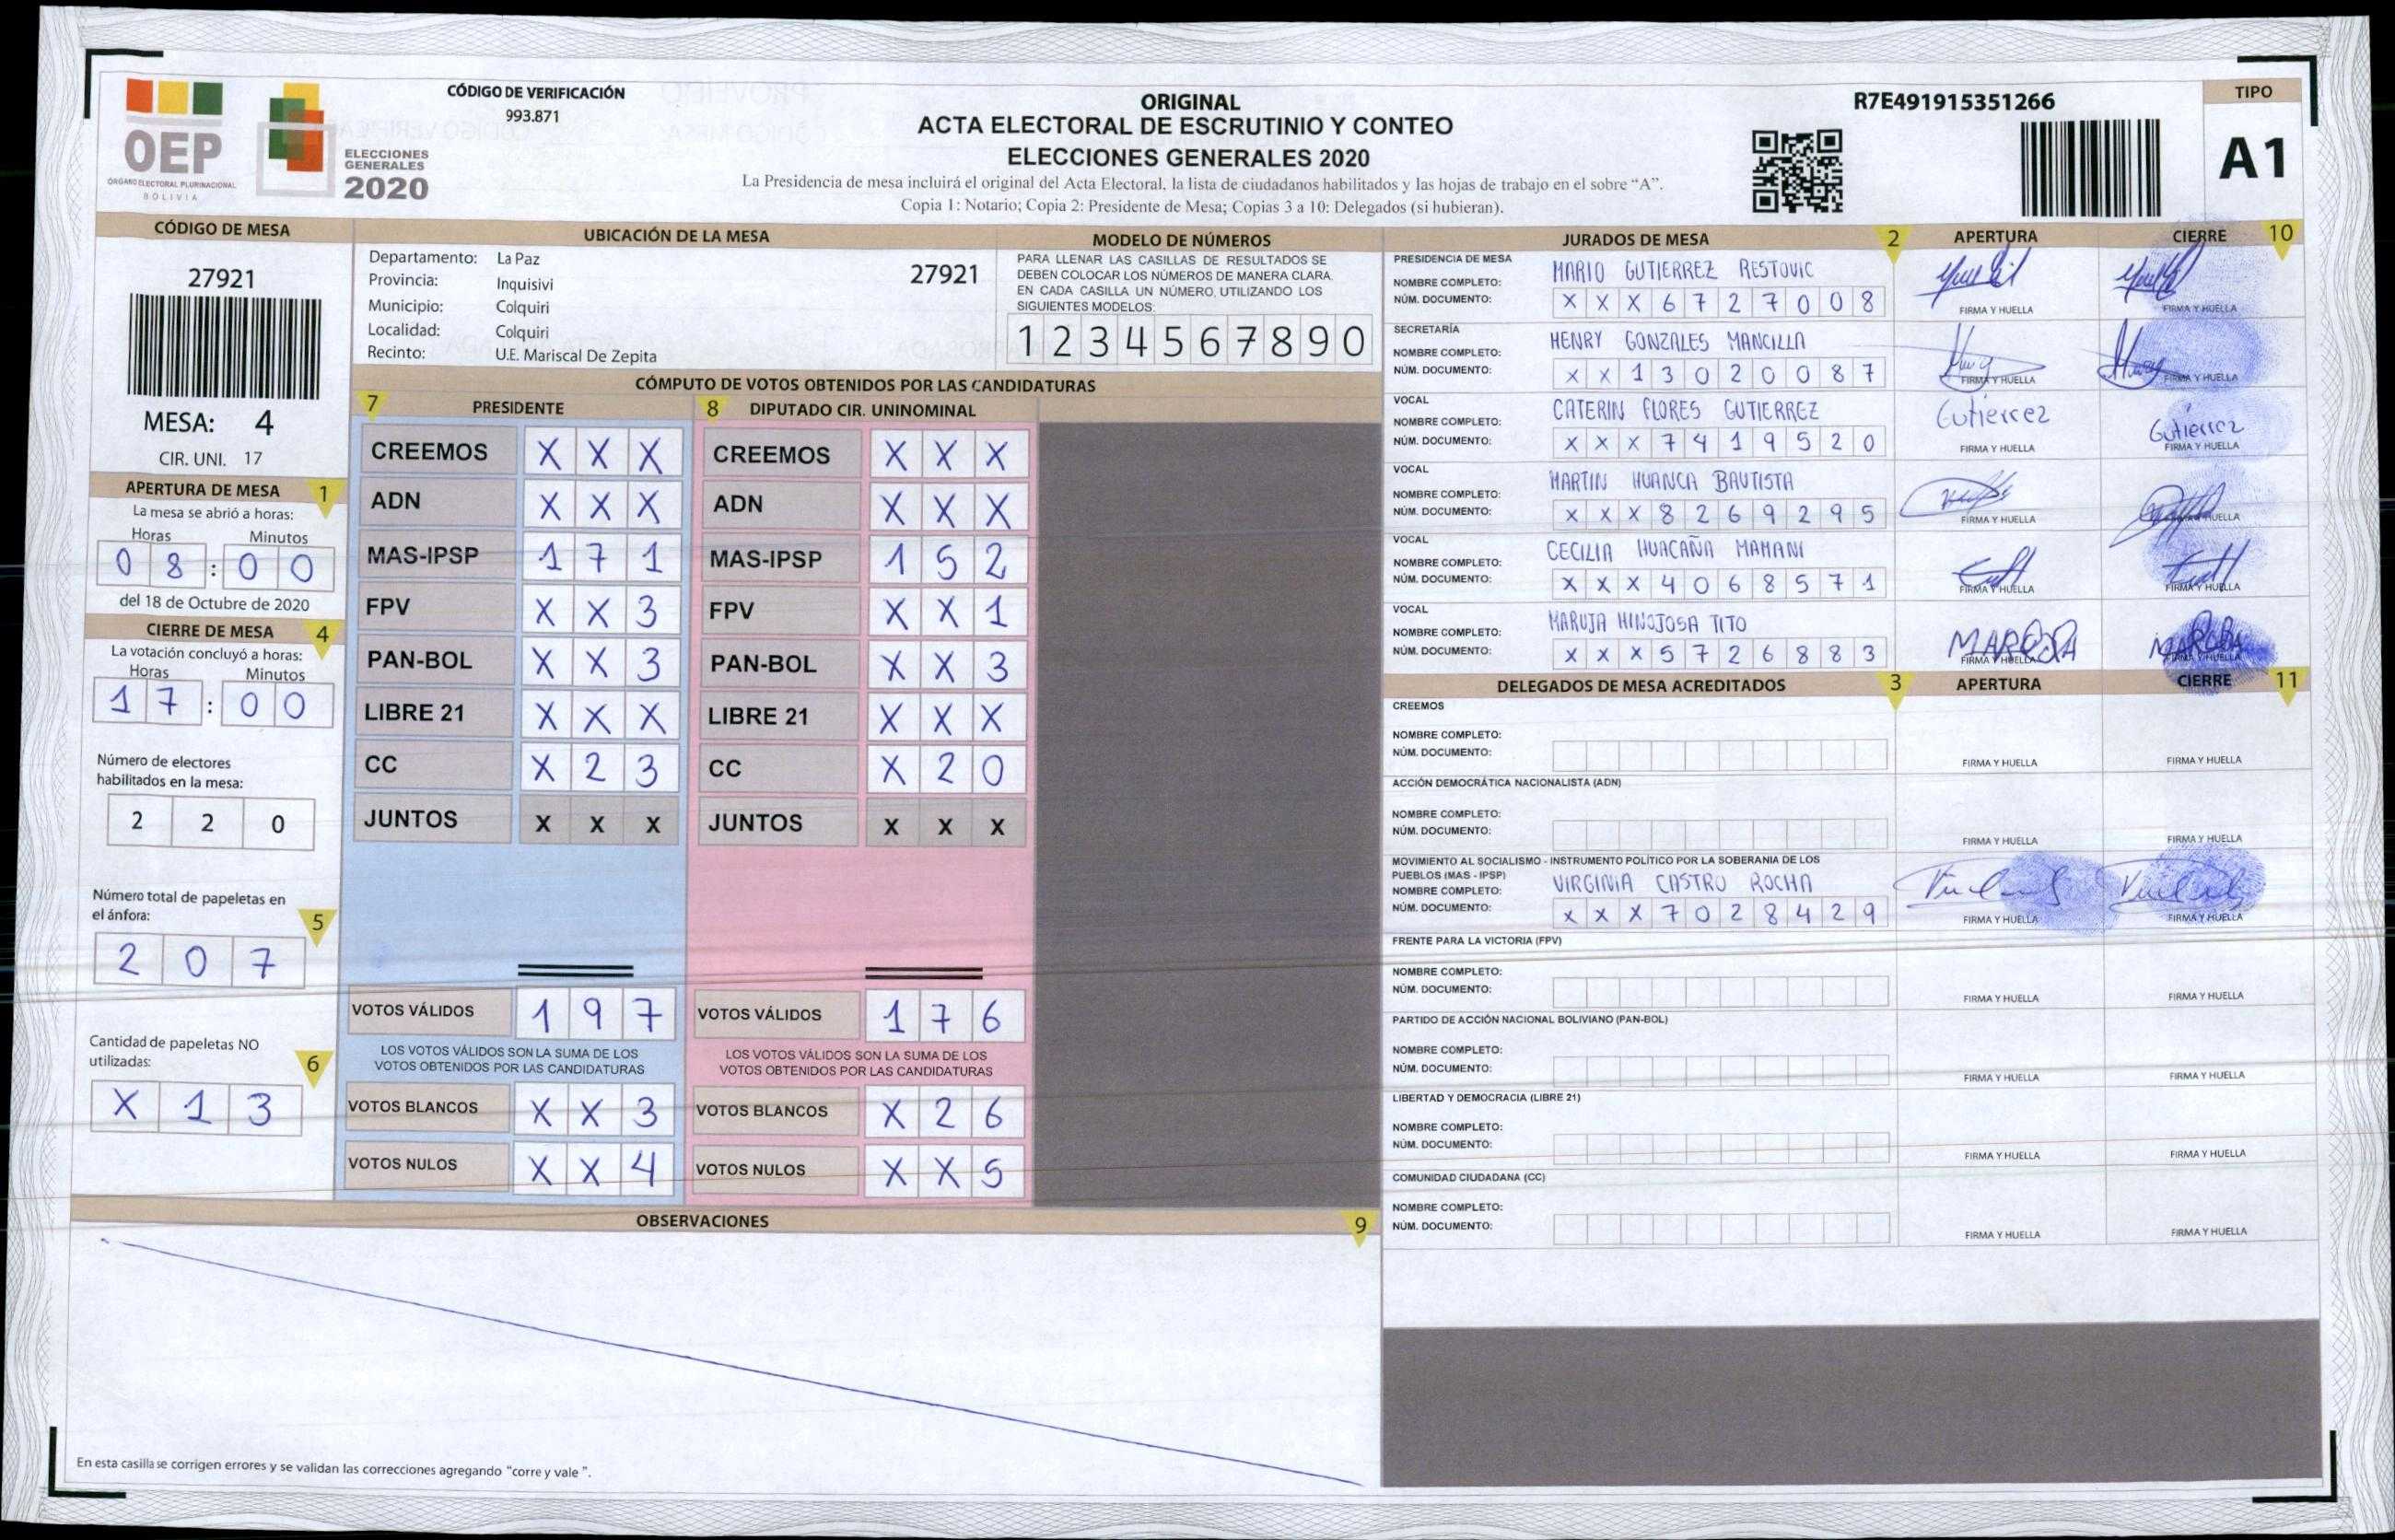 OEP
ÓRGANO ELECTORAL PLURINACIONAL
BOLIVIA
ELECCIONES
GENERALES
2020
CÓDIGO DE VERIFICACIÓN
993.871
ORIGINAL
ACTA ELECTORAL DE ESCRUTINIO Y CONTEO
ELECCIONES GENERALES 2020
La Presidencia de mesa incluirá el original del Acta Electoral, la lista de ciudadanos habilitados y las hojas de trabajo en el sobre “A”.
Copia 1: Notario; Copia 2: Presidente de Mesa; Copias 3 a 10: Delegados (si hubieran).
R7E491915351266
TIPO
A1
CÓDIGO DE MESA
27921
MESA: 4
CIR. UNI. 17
APERTURA DE MESA 1
La mesa se abrió a horas:
Horas Minutos
0 8 : 0 0
del 18 de Octubre de 2020
CIERRE DE MESA 4
La votación concluyó a horas:
Horas Minutos
1 7 : 0 0
Número de electores
habilitados en la mesa:
2 2 0
Número total de papeletas en
el ánfora: 5
2 0 7
Cantidad de papeletas NO
utilizadas: 6
X 1 3
UBICACIÓN DE LA MESA
Departamento: La Paz
27921
Provincia: Inquisivi
Municipio: Colquiri
Localidad: Colquiri
Recinto: U.E. Mariscal De Zepita
MODELO DE NÚMEROS
PARA LLENAR LAS CASILLAS DE RESULTADOS SE
DEBEN COLOCAR LOS NÚMEROS DE MANERA CLARA.
EN CADA CASILLA UN NÚMERO, UTILIZANDO LOS
SIGUIENTES MODELOS:
1 2 3 4 5 6 7 8 9 0
CÓMPUTO DE VOTOS OBTENIDOS POR LAS CANDIDATURAS
7 PRESIDENTE
CREEMOS X X X
ADN X X X
MAS-IPSP 1 7 1
FPV X X 3
PAN-BOL X X 3
LIBRE 21 X X X
CC X 2 3
JUNTOS X X X
VOTOS VÁLIDOS 1 9 7
LOS VOTOS VÁLIDOS SON LA SUMA DE LOS
VOTOS OBTENIDOS POR LAS CANDIDATURAS
VOTOS BLANCOS X X 3
VOTOS NULOS X X 4
8 DIPUTADO CIR. UNINOMINAL
CREEMOS X X X
ADN X X X
MAS-IPSP 1 5 2
FPV X X 1
PAN-BOL X X 3
LIBRE 21 X X X
CC X 2 0
JUNTOS X X X
VOTOS VÁLIDOS 1 7 6
LOS VOTOS VÁLIDOS SON LA SUMA DE LOS
VOTOS OBTENIDOS POR LAS CANDIDATURAS
VOTOS BLANCOS X 2 6
VOTOS NULOS X X 5
OBSERVACIONES 9
En esta casilla se corrigen errores y se validan las correcciones agregando “corre y vale ”.
JURADOS DE MESA 2 APERTURA CIERRE 10
PRESIDENCIA DE MESA
NOMBRE COMPLETO: MARIO GUTIERREZ RESTOVIC
NÚM. DOCUMENTO: X X X 6 7 2 7 0 0 8
FIRMA Y HUELLA FIRMA Y HUELLA
SECRETARÍA
NOMBRE COMPLETO: HENRY GONZALES MANCILLA
NÚM. DOCUMENTO: X X 1 3 0 2 0 0 8 7
FIRMA Y HUELLA FIRMA Y HUELLA
VOCAL
NOMBRE COMPLETO: CATERIN FLORES GUTIERREZ
Gutierrez Gutierrez
NÚM. DOCUMENTO: X X X 7 4 1 9 5 2 0
FIRMA Y HUELLA FIRMA Y HUELLA
VOCAL
NOMBRE COMPLETO: MARTIN HUANCA BAUTISTA
NÚM. DOCUMENTO: X X X 8 2 6 9 2 9 5
FIRMA Y HUELLA FIRMA Y HUELLA
VOCAL
NOMBRE COMPLETO: CECILIA HUACAÑA MAMANI
NÚM. DOCUMENTO: X X X 4 0 6 8 5 7 1
FIRMA Y HUELLA FIRMA Y HUELLA
VOCAL
NOMBRE COMPLETO: MARUJA HINOJOSA TITO
NÚM. DOCUMENTO: X X X 5 7 2 6 8 8 3
FIRMA Y HUELLA FIRMA Y HUELLA
DELEGADOS DE MESA ACREDITADOS 3 APERTURA CIERRE 11
CREEMOS
NOMBRE COMPLETO:
NÚM. DOCUMENTO:
FIRMA Y HUELLA FIRMA Y HUELLA
ACCIÓN DEMOCRÁTICA NACIONALISTA (ADN)
NOMBRE COMPLETO:
NÚM. DOCUMENTO:
FIRMA Y HUELLA FIRMA Y HUELLA
MOVIMIENTO AL SOCIALISMO - INSTRUMENTO POLÍTICO POR LA SOBERANIA DE LOS
PUEBLOS (MAS - IPSP)
NOMBRE COMPLETO: VIRGINIA CASTRO ROCHA
NÚM. DOCUMENTO: X X X 7 0 2 8 4 2 9
FIRMA Y HUELLA FIRMA Y HUELLA
FRENTE PARA LA VICTORIA (FPV)
NOMBRE COMPLETO:
NÚM. DOCUMENTO:
FIRMA Y HUELLA FIRMA Y HUELLA
PARTIDO DE ACCIÓN NACIONAL BOLIVIANO (PAN-BOL)
NOMBRE COMPLETO:
NÚM. DOCUMENTO:
FIRMA Y HUELLA FIRMA Y HUELLA
LIBERTAD Y DEMOCRACIA (LIBRE 21)
NOMBRE COMPLETO:
NÚM. DOCUMENTO:
FIRMA Y HUELLA FIRMA Y HUELLA
COMUNIDAD CIUDADANA (CC)
NOMBRE COMPLETO:
NÚM. DOCUMENTO:
FIRMA Y HUELLA FIRMA Y HUELLA